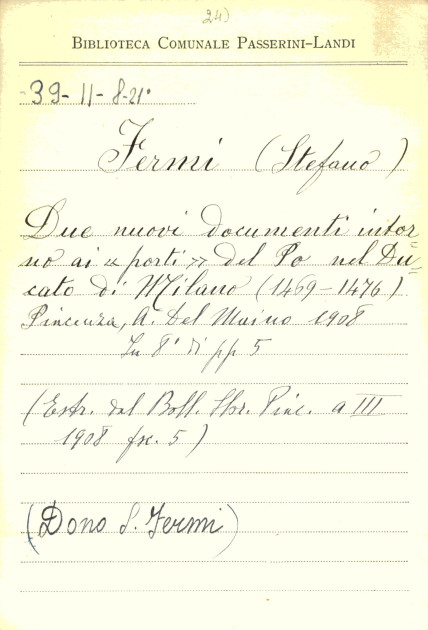 24)
BIBLIOTECA COMUNALE PASSERINI-LANDI
39-11-8-21°
Fermi (Stefano)
Due nuovi documenti intor=
no ai « porti » del Po nel Du=
cato di Milano (1469-1476)
Piacenza, A. Del Maino 1908
In 8° di pp 5
(Estr. dal Boll. Stor. Piac. a III
1908 fsc. 5)
(Dono S. Fermi)